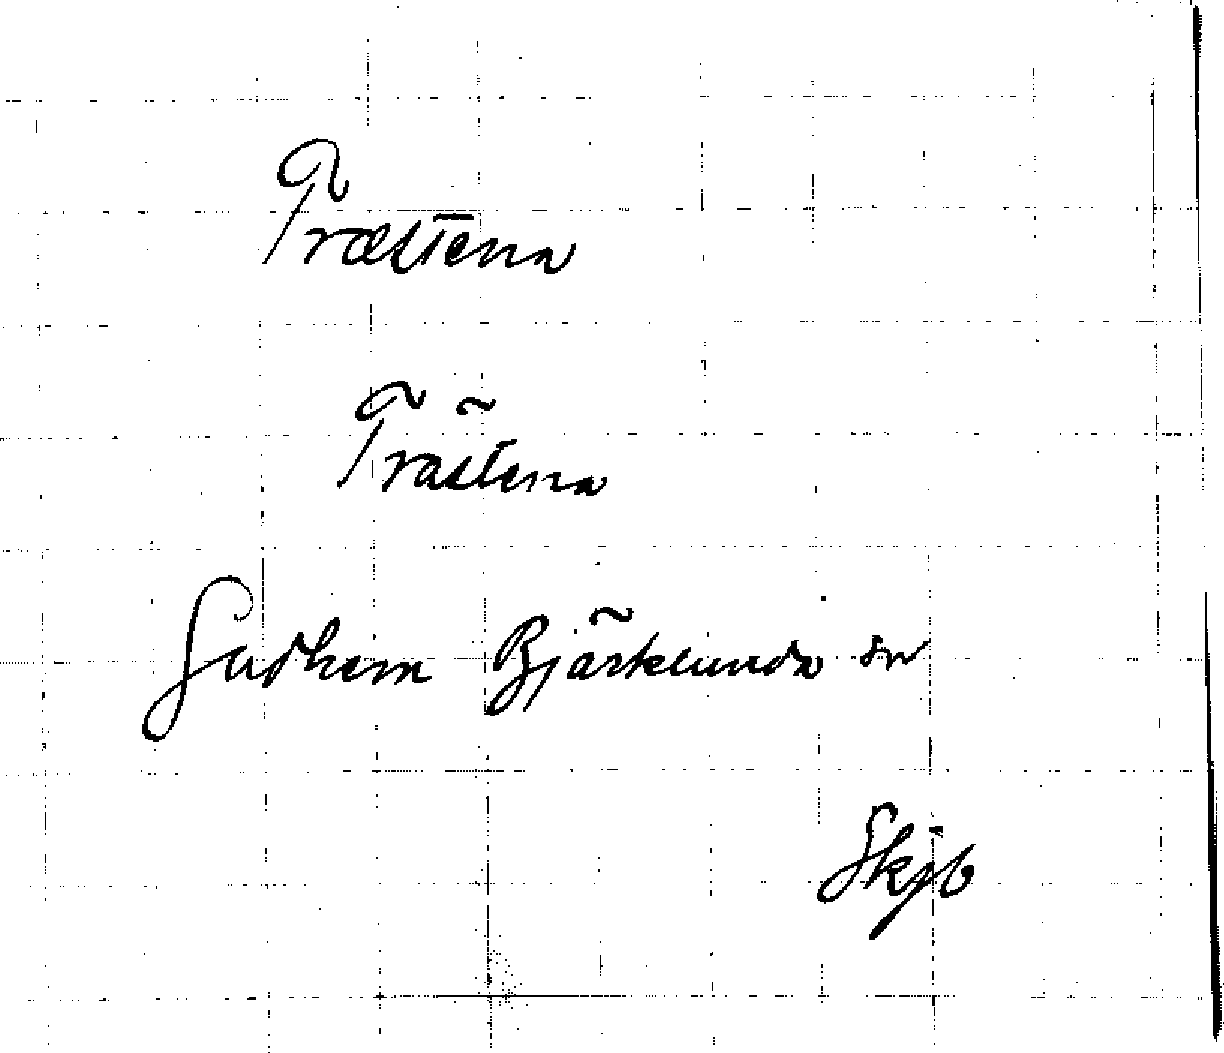 Træstena
Trästena
Gudhem Bjärklunda sn
Skjb